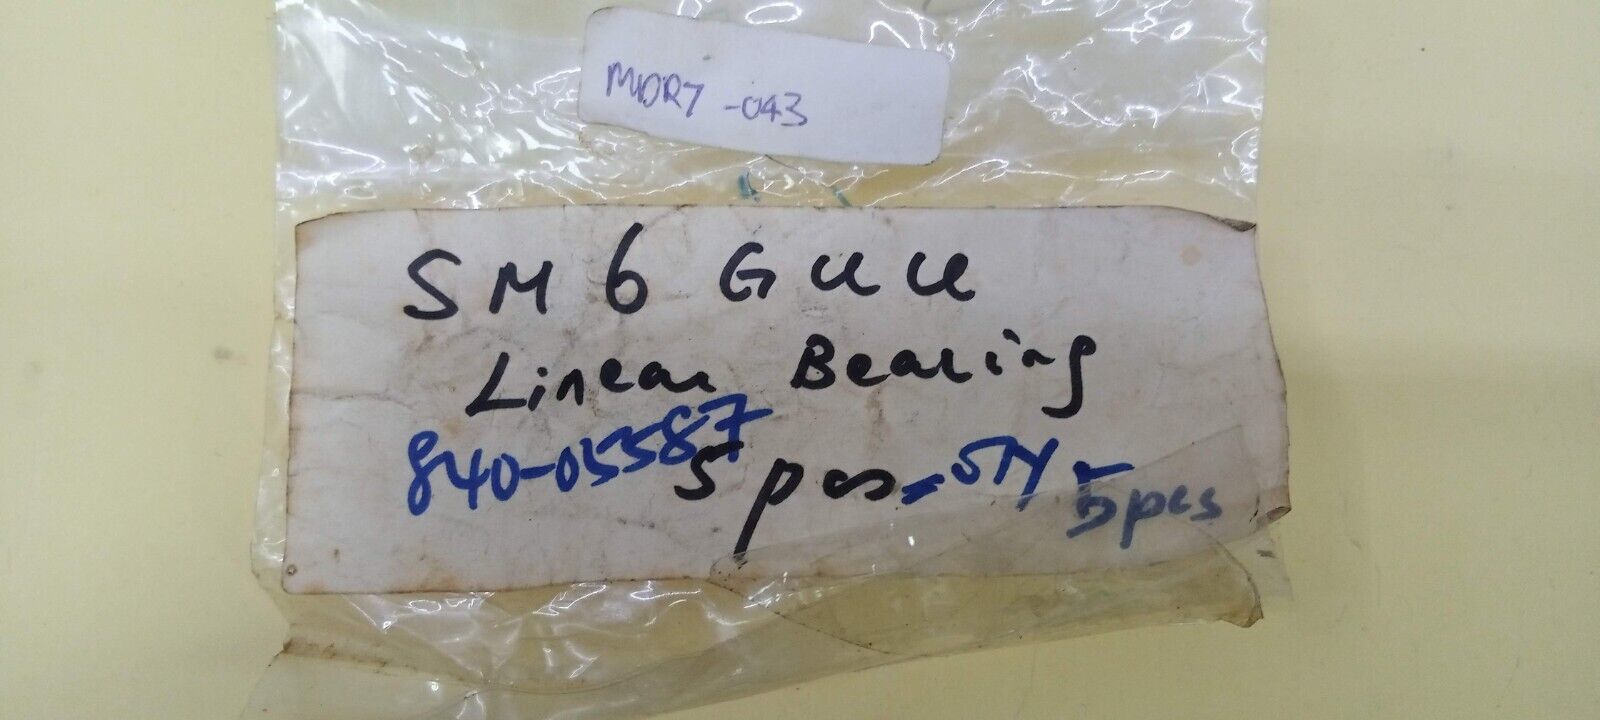 MDR7 -043
SM 6 GUU
Linear Bearing
840-05587
5 pcs = QTY
5pcs